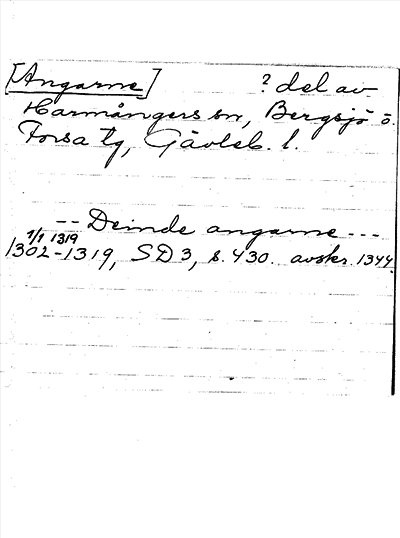 [Angarne] ? del av
Harmångers sn, Bergsjö o.
Forsa tg, Gävleb. l.
-- Deinde angarne ---
1/1 1319
1302-1319, SD 3, s. 430. avskr. 1344.